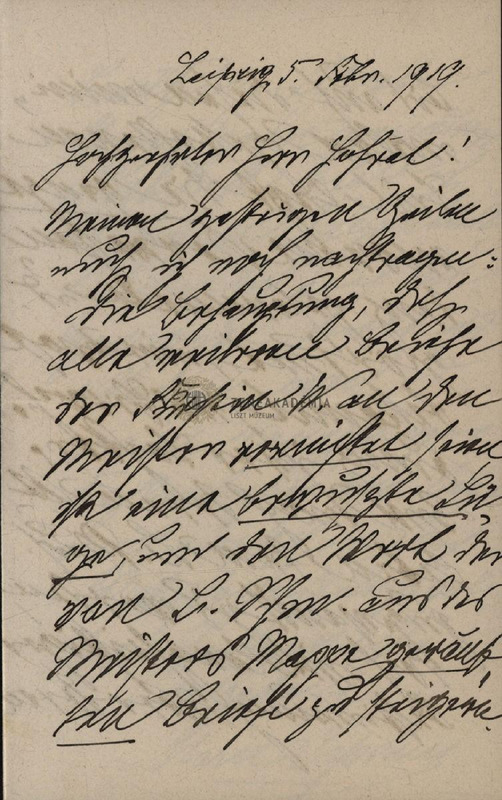 Leipzig, 5. Febr. 1919.
Hochgeehrter Herr Hofrat!
Meinen gestrigen Zeilen
muß ich noch nachtragen:
Die Behauptung, daß
alle weiteren Briefe
der Fürstin W. an den
Meister vernichtet seien
ist eine bewußte Lü-
ge, um den Wert der
von L. Schm. aus des
Meisters Mappe geräub-
ten Briefe zu steigern.
ZENEAKADÉMIA
LISZT MÚZEUM